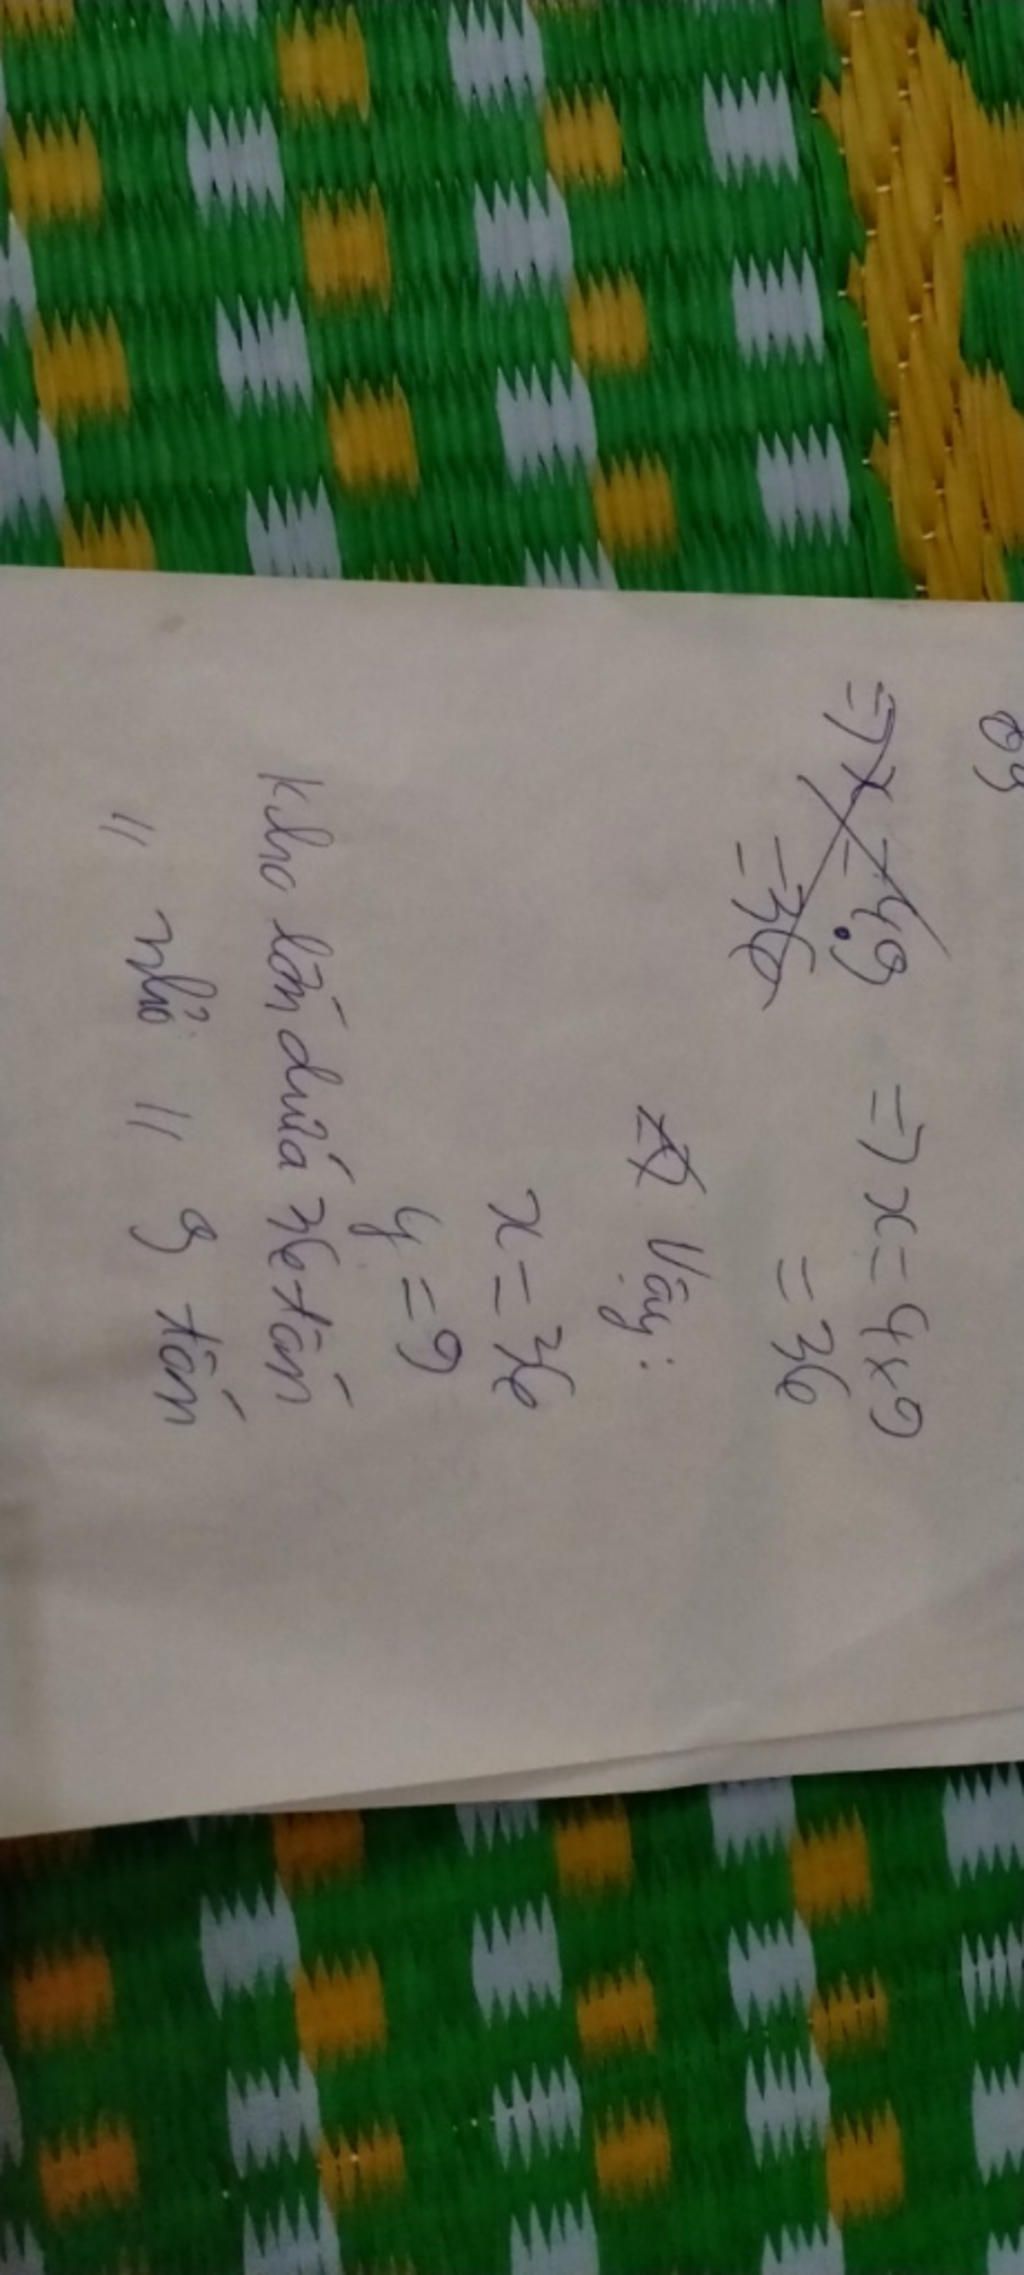 => x = 4.9 => x = 4x9
= 36 = 36
Vậy:
x = 36
y = 9
Kho lớn chứa 36 tấn
" nhỏ " 9 tấn